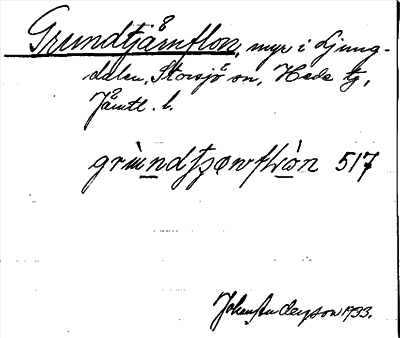 Grundtjåmflon, myr i Ljung-
dalen, Storsjö sn, Hede tg,
Jämtl. l.
grùndtȿæmflòn 517
Johan Anderson 1933.